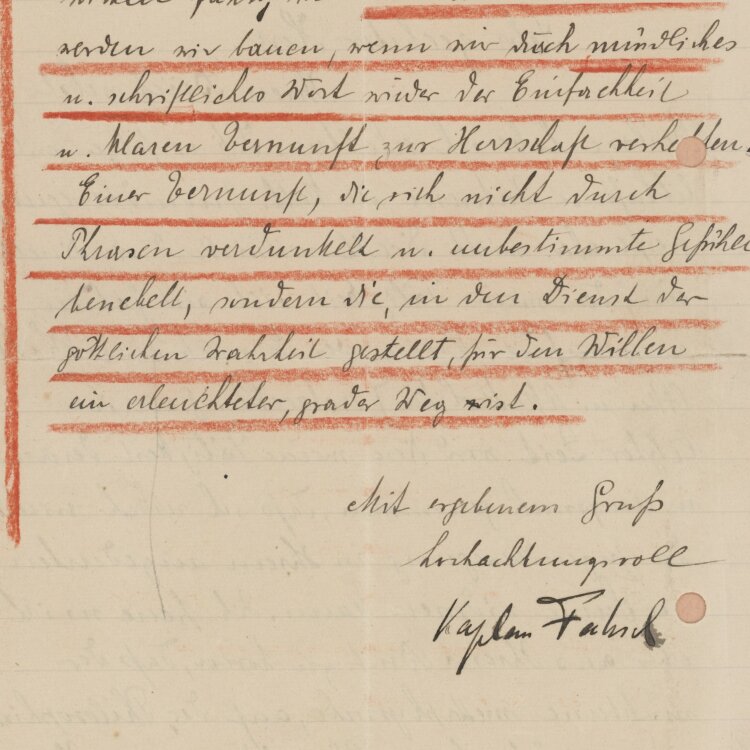 werden wir bauen, wenn wir durch mündliches
u. schriftliches Wort wieder der Einfachheit
u. klaren Vernunft zur Herrschaft verhelfen.
Einer Vernunft, die sich nicht durch
Phrasen verdunkelt u. unbestimmte Gefühle
benebelt, sondern die, in den Dienst der
göttlichen Wahrheit gestellt, für den Willen
ein erleuchteter, grader Weg ist.
Mit ergebenem Gruß
hochachtungsvoll
Kaplan Fahsel